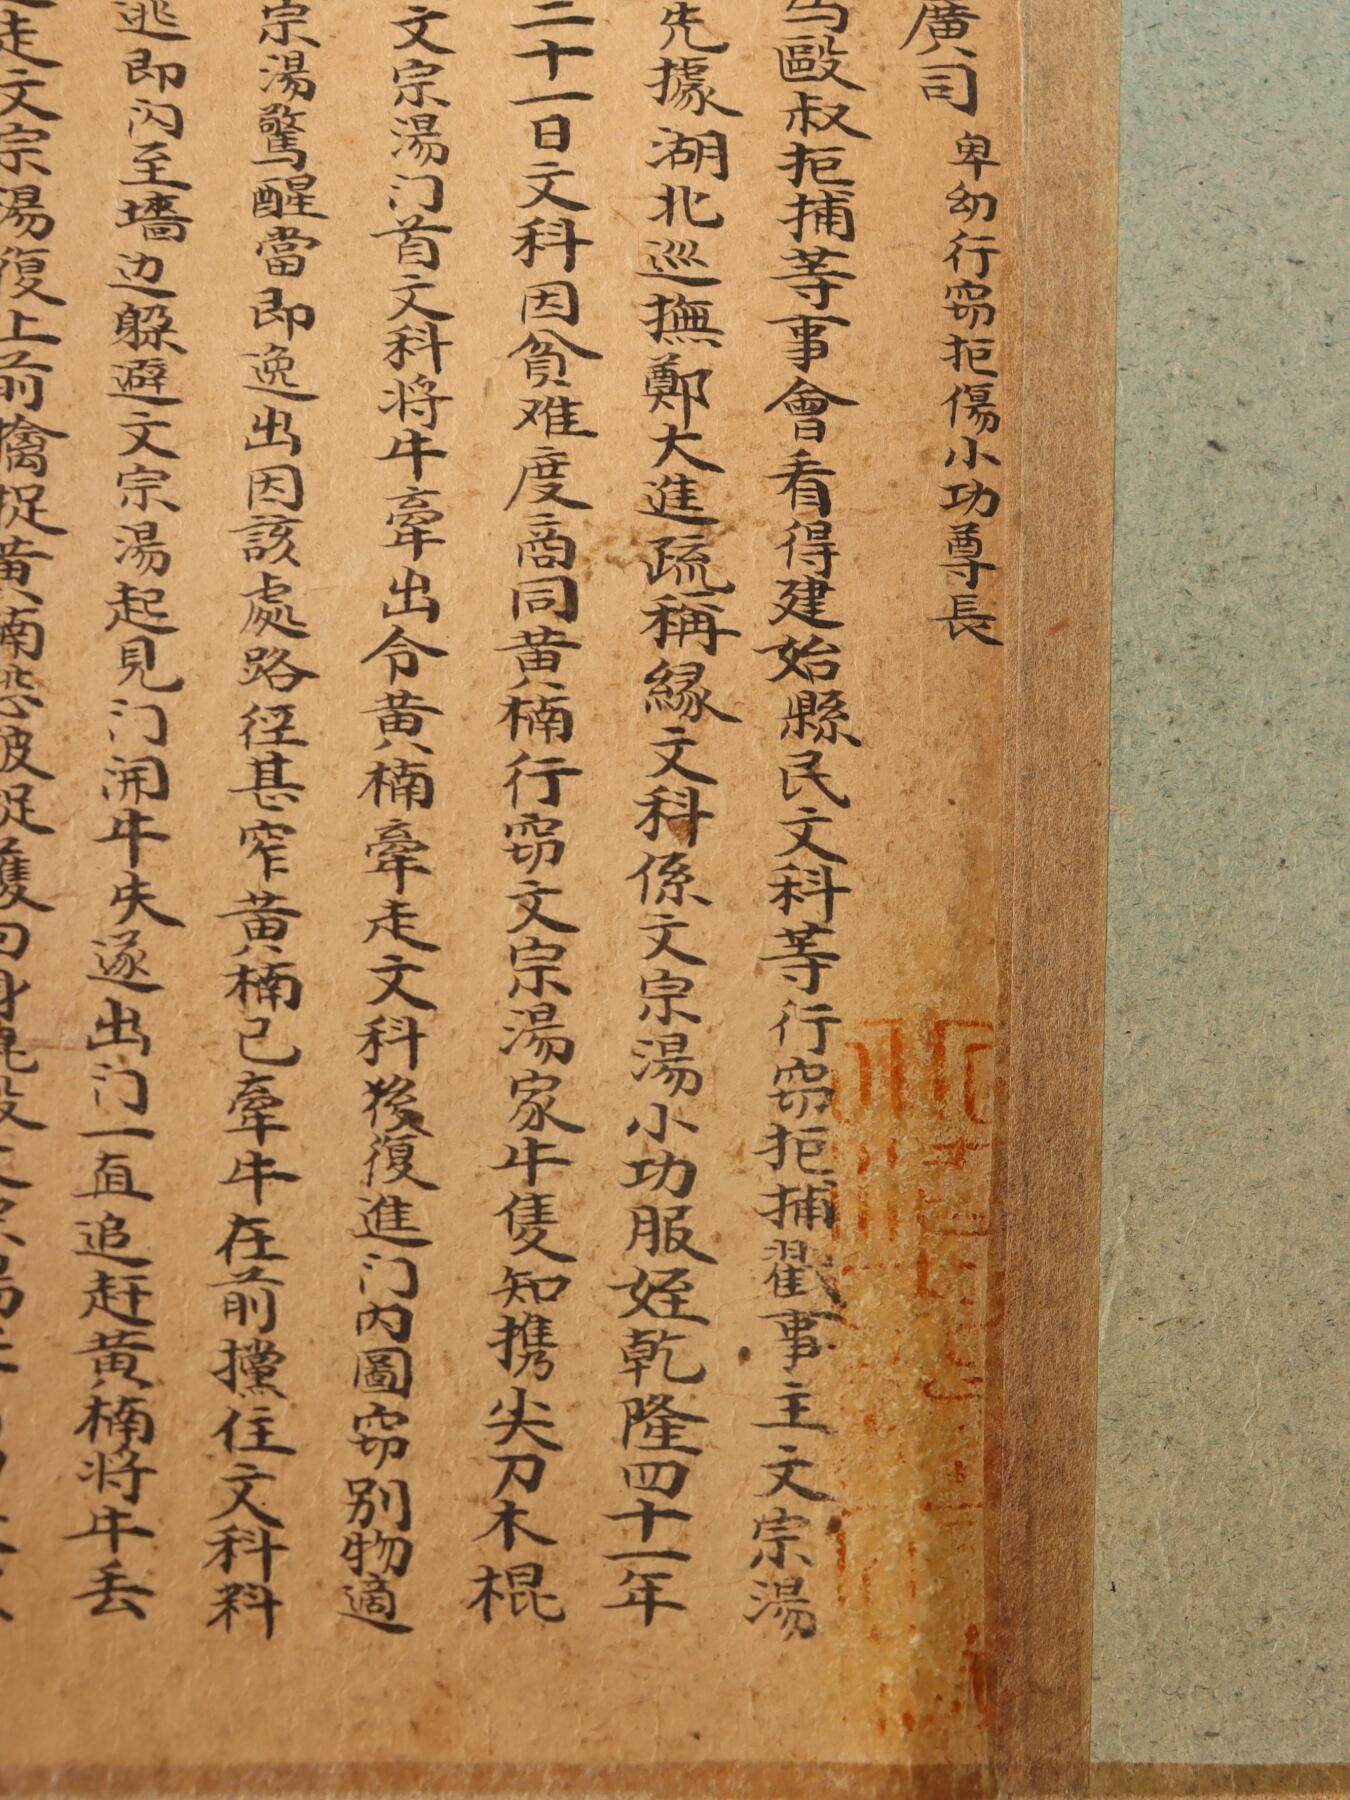 廣司 卑幼行窃拒傷小功尊長
毆叔拒捕等事會看得建始縣民文科等行窃拒捕戳事主文宗湯
先據湖北巡撫鄭大進疏稱緣文科係文宗湯小功服姪乾隆四十一年
二十一日文科因貧难度商同黄楠行窃文宗湯家牛隻知携尖刀木棍
文宗湯门首文科将牛牽出令黄楠牽走文科後復進门内圖窃别物適
宗湯驚醒當即逸出因該處路径甚窄黄楠已牽牛在前攩住文科料
逃即闪至墻边躲避文宗湯起見门開牛失逐出门一直追赶黄楠将牛丢
走文宗湯復上前擒捉黄楠恐被捉獲